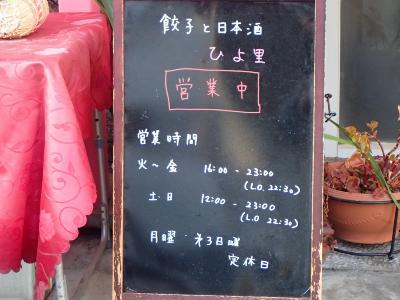 餃子と日本酒
ひよ里
営業中
営業時間
火～金 16:00 - 23:00
(L.O. 22:30)
土・日 12:00 - 23:00
(L.O 22:30)
月曜・第3日曜
定休日